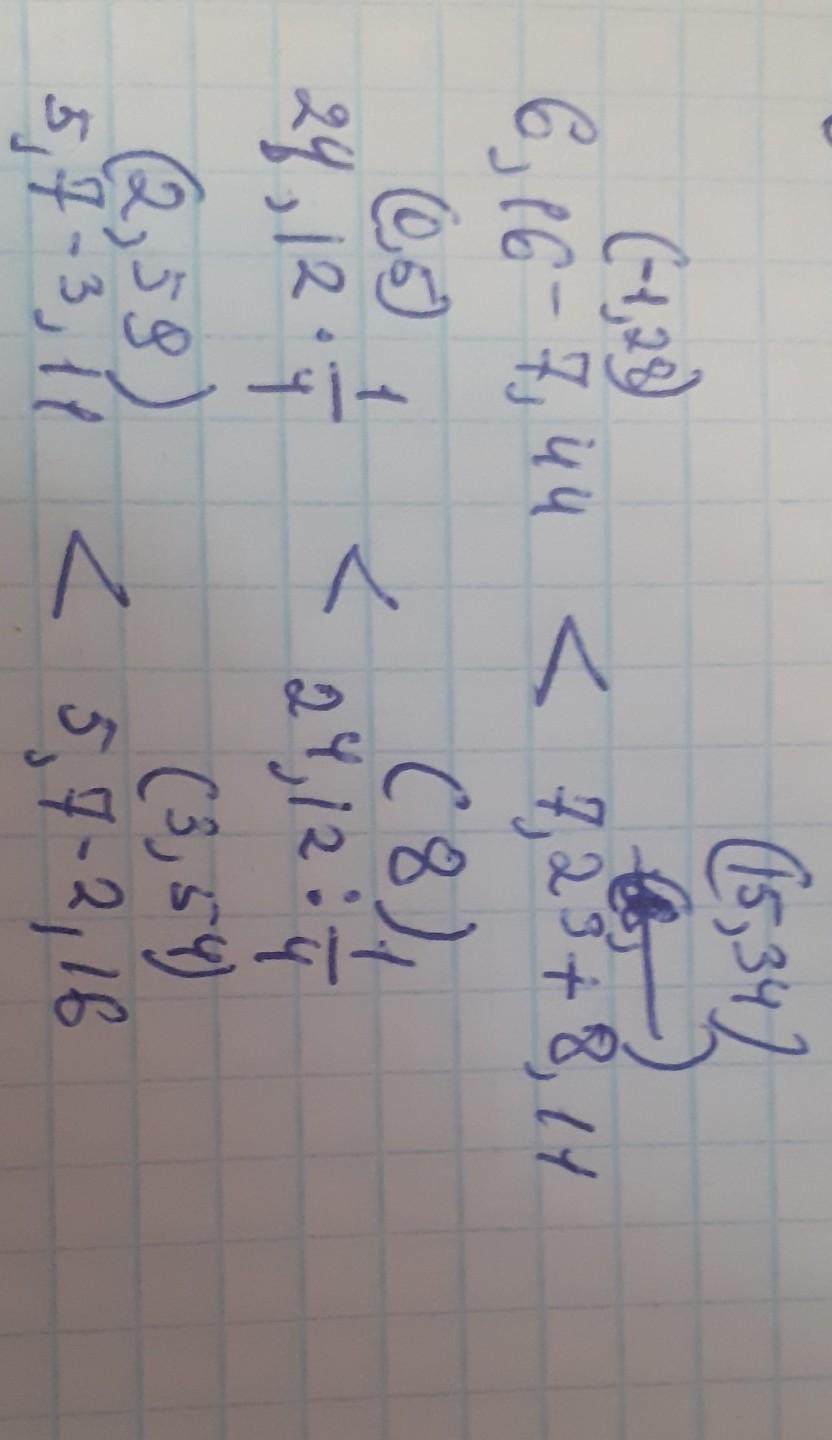 (-1,28) (15,34)
6,16-7,44 < 7,23+8,11
(0,5) (8)
24,12·1/4 < 24,12:1/4
(2,59) (3,54)
5,7-3,11 < 5,7-2,16